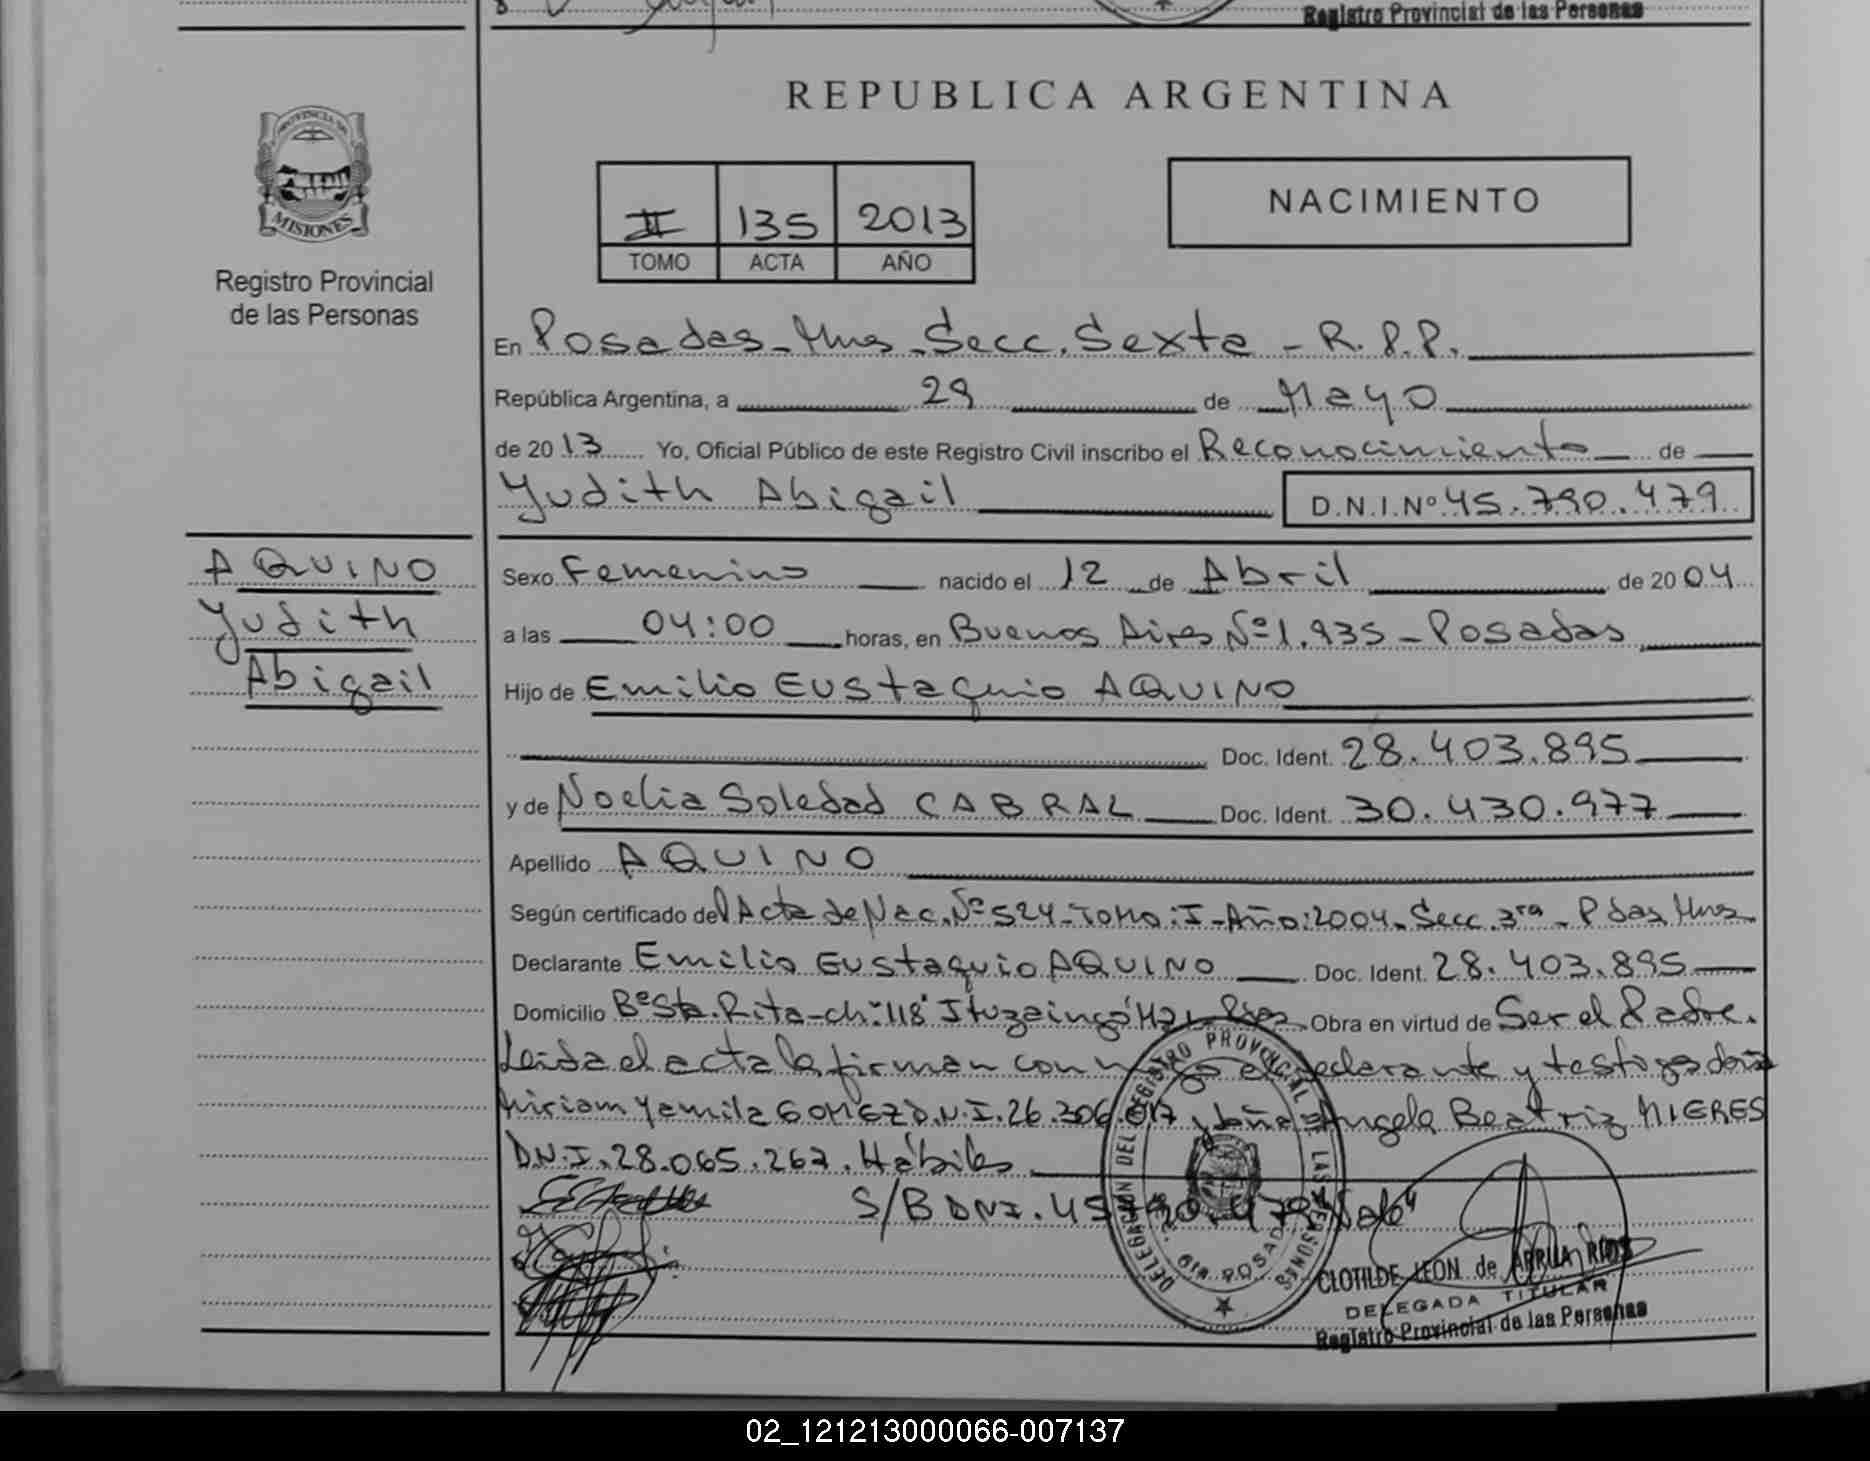 Registro Provincial de las Personas
REPUBLICA ARGENTINA
PROVINCIA DE
MISIONES
Registro Provincial
de las Personas
II 135 2013
TOMO ACTA AÑO
NACIMIENTO
En Posadas - Mns - Secc. Sexta - R.P.P.
República Argentina, a 29 de Mayo
de 2013 Yo, Oficial Público de este Registro Civil inscribo el Reconocimiento de
Yudith Abigail D.N.I.Nº 45.790.479
AQUINO
Yudith
Abigail
Sexo Femenino nacido el 12 de Abril de 2004
a las 04:00 horas, en Buenos Aires Nº 1.935 - Posadas
Hijo de Emilio Eustaquio AQUINO
Doc. Ident. 28.403.895
y de Noelia Soledad CABRAL Doc. Ident. 30.430.977
Apellido AQUINO
Según certificado del Acta de Nac. Nº 524 - Tomo: I - Año: 2004 - Secc. 3ra - Pdas Mns.
Declarante Emilio Eustaquio AQUINO Doc. Ident. 28.403.895
Domicilio Bº Sta. Rita - ch: "118" Ituzaingó Obra en virtud de Ser el Padre.
Leída el acta la firman con el declarante y testigos doña
Miriam Yamila GOMEZ D.N.I. 26.306.017 y doña Angela Beatriz MIERES
D.N.I. 28.065.267. Hábiles
S/B DNI. 45.790.479 "Vale"
DELEGACION DEL REGISTRO PROVINCIAL DE LAS PERSONAS
6ta POSADAS
CLOTILDE LEON de ARRUA RIOS
DELEGADA TITULAR
Registro Provincial de las Personas
02_121213000066-007137